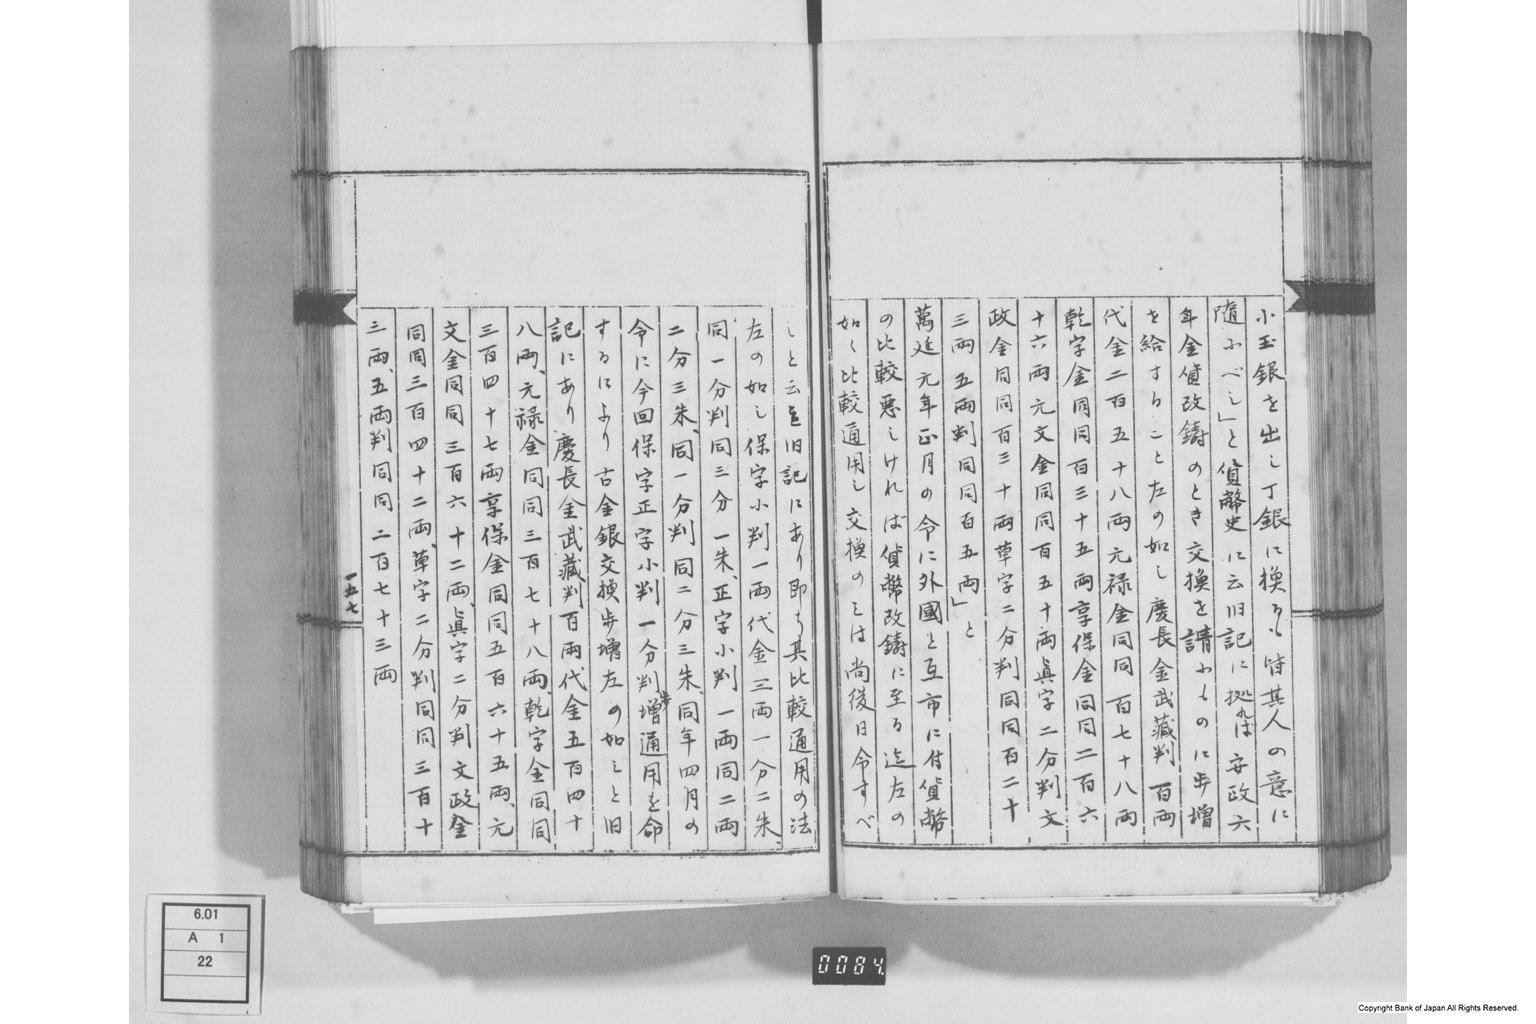 小玉銀を出し丁銀に換ふるも皆其人の意に
随ふべし」と貨幣史に云旧記に拠れば安政六
年金貨改鋳のとき交換を請ふものに歩増
を給すること左の如し慶長金武蔵判百両
代金二百五十八両元禄金同同百七十八両
乾字金同同百三十五両享保金同同二百六
十六両元文金同同百五十両真字二分判文
政金同同百三十両草字二分判同同百二十
三両五両判同同百五両」と
萬延元年正月の令に外國と互市に付貨幣
の比較悪しければ貨幣改鋳に至る迄左の
如く比較通用し交換のみは尚後日令すべ
しと云旧記にあり即ち其比較通用の法
左の如し保字小判一両代金三両一分二朱、
同一分判同三分一朱、正字小判一両同二両
二分三朱、同一分判同二分三朱、同年四月の
令に今回保字正字小判一分判歩増通用を命
するにより古金銀交換歩増左の如しと旧
記にあり慶長金武蔵判百両代金五百四十
八両、元禄金同同三百七十八両、乾字金同同
三百四十七両享保金同同五百六十五両、元
文金同同三百六十二両、真字二分判文政金
同同三百四十二両、草字二分判同同三百十
三両、五両判同同二百七十三両
一五七
6.01
A 1
22
0084
Copyright Bank of Japan All Rights Reserved.